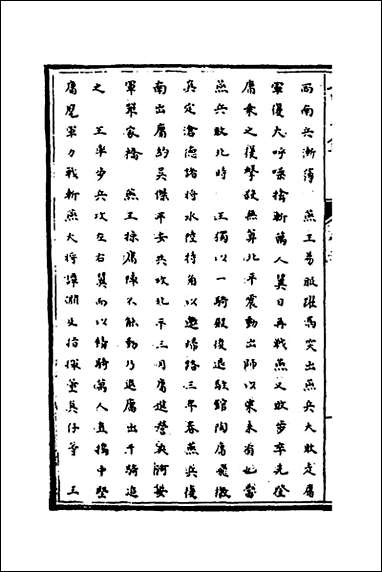 西南兵漸薄 燕王易服躍馬突出燕兵大敗走庸
軍復大呼噪擒斬萬人翼日再戰燕又敗步卒先登
庸乘之復擊殺無算北平震動出師以來未有也當
燕兵敗北時 王獨以一騎殿後退駐館陶庸飛檄
真定滄德諸將水陸犄角以邀歸路三年春燕兵復
南出庸約吳傑平安兵攻北平三月庸進營夾河安
軍單家橋 燕王掠庸陣不能動乃退庸出千騎追
之 王率步兵攻左右翼而以驍騎萬人直搗中堅
庸麾軍力戰斬燕大將譚淵史指揮董真仔等 王